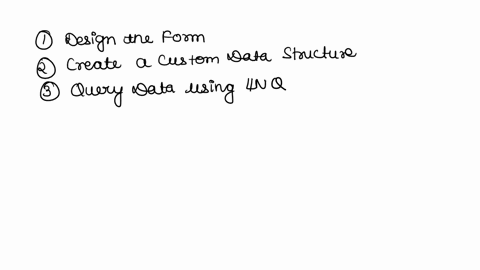 ① Design the Form
② Create a Custom Data Structure
③ Query Data using 4NQ